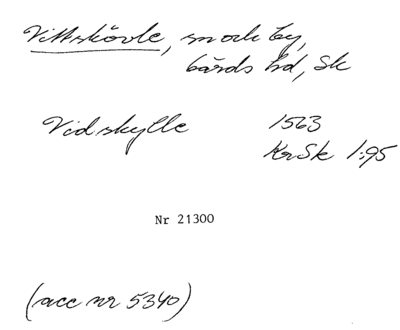 Vittskövle, sn och by,
Gärds hd, Sk
Vidskylle 1563
KrSk 1:95
Nr 21300
(acc nr 5340)